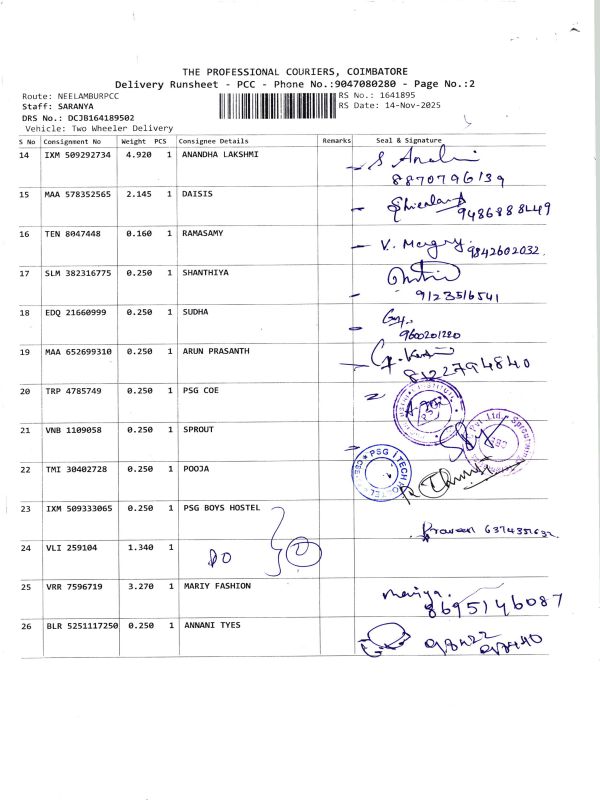 THE PROFESSIONAL COURIERS, COIMBATORE
Delivery Runsheet - PCC - Phone No.:9047080280 - Page No.:2
Route: NEELAMBURPCC RS No.: 1641895
Staff: SARANYA RS Date: 14-Nov-2025
DRS No.: DCJB164189502
Vehicle: Two Wheeler Delivery
S No Consignment No Weight PCS Consignee Details Remarks Seal & Signature
14 IXM 509292734 4.920 1 ANANDHA LAKSHMI
8870796139
15 MAA 578352565 2.145 1 DAISIS
9486888449
16 TEN 8047448 0.160 1 RAMASAMY V. 9842602032
17 SLM 382316775 0.250 1 SHANTHIYA
9123516541
18 EDQ 21660999 0.250 1 SUDHA
9600201280
19 MAA 652699310 0.250 1 ARUN PRASANTH
8122794840
20 TRP 4785749 0.250 1 PSG COE
21 VNB 1109058 0.250 1 SPROUT
22 TMI 30402728 0.250 1 POOJA
23 IXM 509333065 0.250 1 PSG BOYS HOSTEL
Praveen 6374351632
24 VLI 259104 1.340 1 DO
25 VRR 7596719 3.270 1 MARIY FASHION Mariya.
8695146087
26 BLR 5251117250 0.250 1 ANNANI TYES